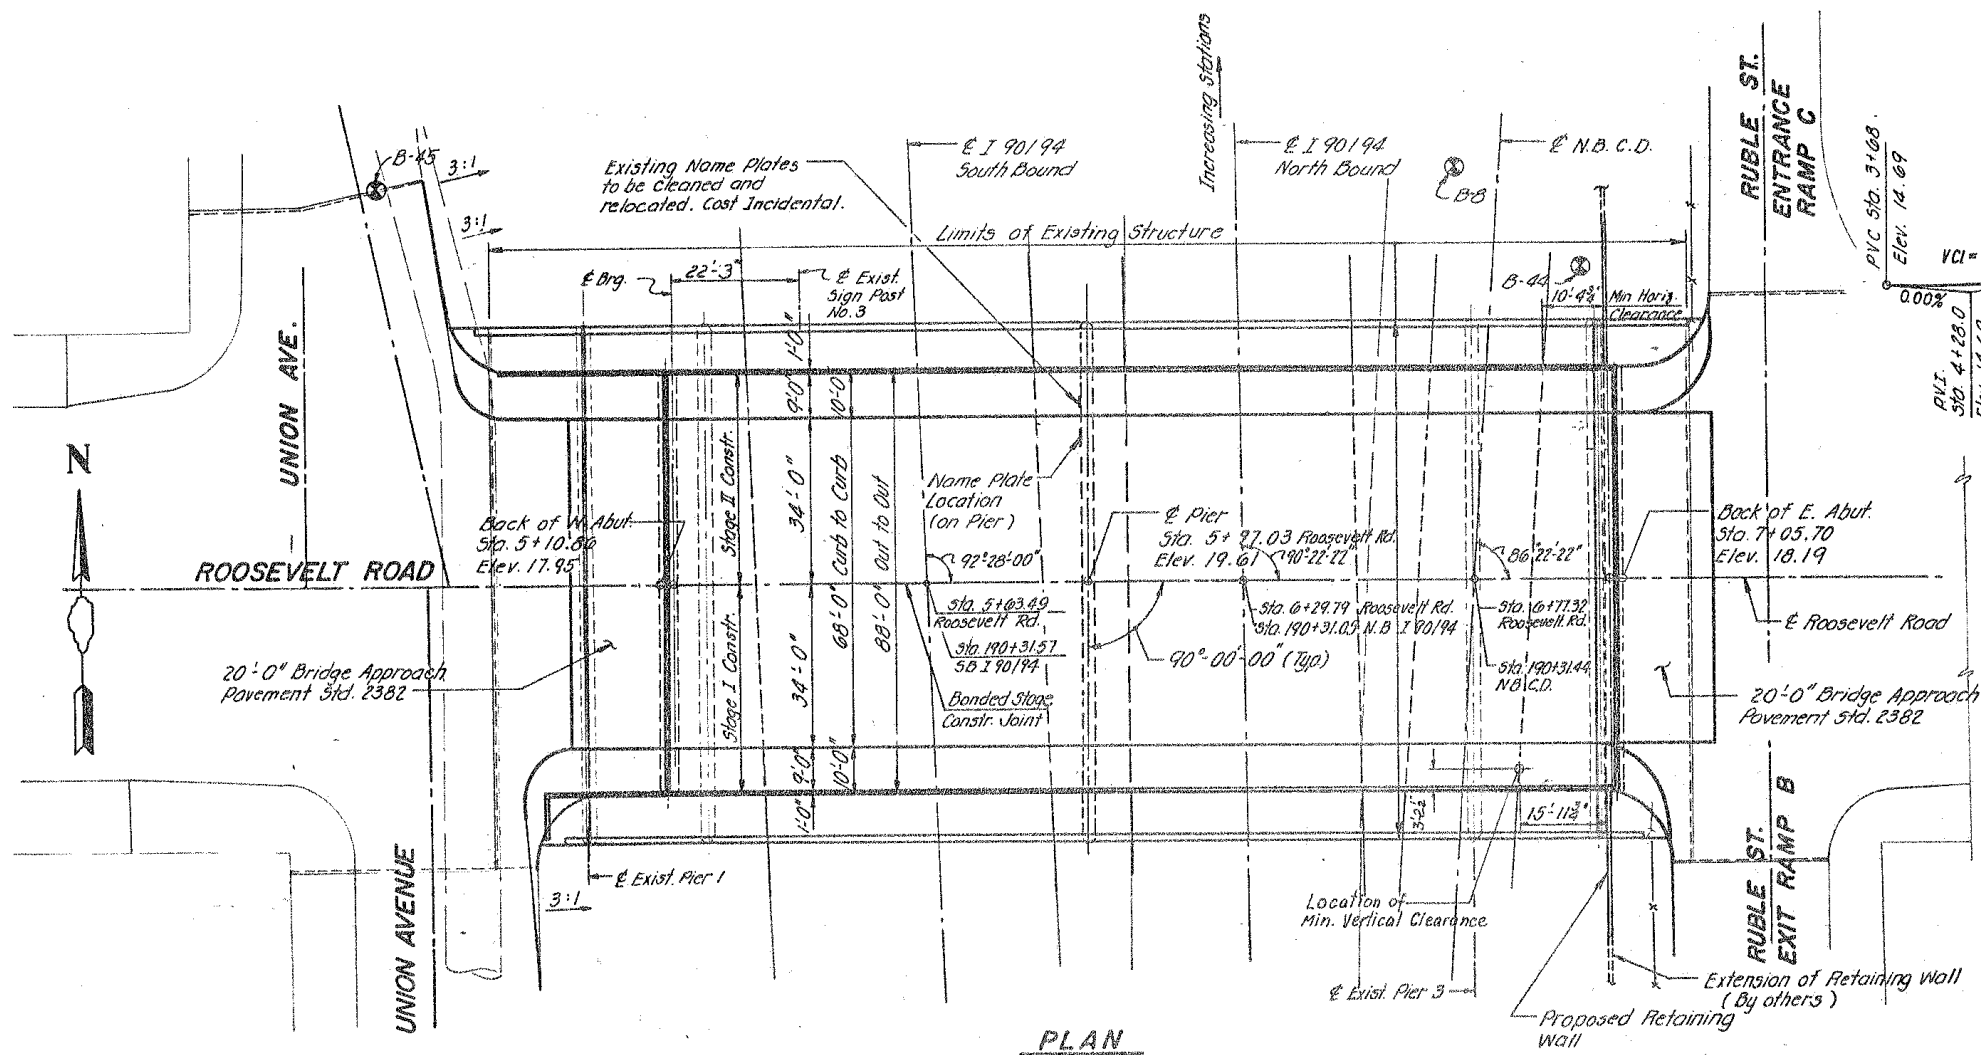 Increasing Stations
RUBLE ST.
ENTRANCE
RAMP C
PVC Sta. 3+68.
Elev. 14.69
VCl=
0.00%
P.V.I.
Sta. 4+28.0
B-45
3:1
3:1
Existing Name Plates
to be cleaned and
relocated. Cost Incidental.
₵ I 90/94
South Bound
₵ I 90/94
North Bound
₵ N.B. C.D.
B-8
Limits of Existing Structure
₵ Brg.
22'-3"
₵ Exist.
Sign Post
No. 3
B-44
10'-4¾"
Min Horiz.
Clearance
UNION AVE.
N
1'-0"
9'-0"
10'-0
Stage II Constr.
34'-0"
68'-0" Curb to Curb
88'-0" Out to Out
Name Plate
Location
(on Pier)
Back of W. Abut.
Sta. 5+10.86
Elev. 17.95
₵ Pier
Sta. 5+97.03 Roosevelt Rd.
Elev. 19.61
92°28'-00"
90°-22'-22"
86°22'-22"
Back of E. Abut.
Sta. 7+05.70
Elev. 18.19
ROOSEVELT ROAD
Sta. 5+63.49
Roosevelt Rd.
Sta. 190+31.57
S.B I 90/94
Sta. 6+29.79 Roosevelt Rd.
Sta. 190+31.05 N.B I 90/94
Sta. 6+77.32
Roosevelt Rd.
Sta. 190+31.44
N.B. C.D.
₵ Roosevelt Road
90°-00'-00" (Typ)
20'-0" Bridge Approach
Pavement Std. 2382
Bonded Stage
Constr. Joint
20'-0" Bridge Approach
Pavement Std. 2382
Stage I Constr.
34'-0"
9'-0"
10'-0"
1'-0"
15'-11¾"
₵ Exist. Pier 1
3:1
UNION AVENUE
Location of
Min. Vertical Clearance
RUBLE ST.
EXIT RAMP B
₵ Exist. Pier 3
Extension of Retaining Wall
(By others)
Proposed Retaining
Wall
PLAN